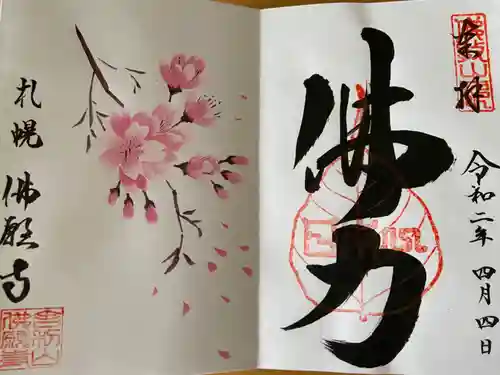 奉拝
令和二年 四月 四日
佛力
札幌 佛願寺